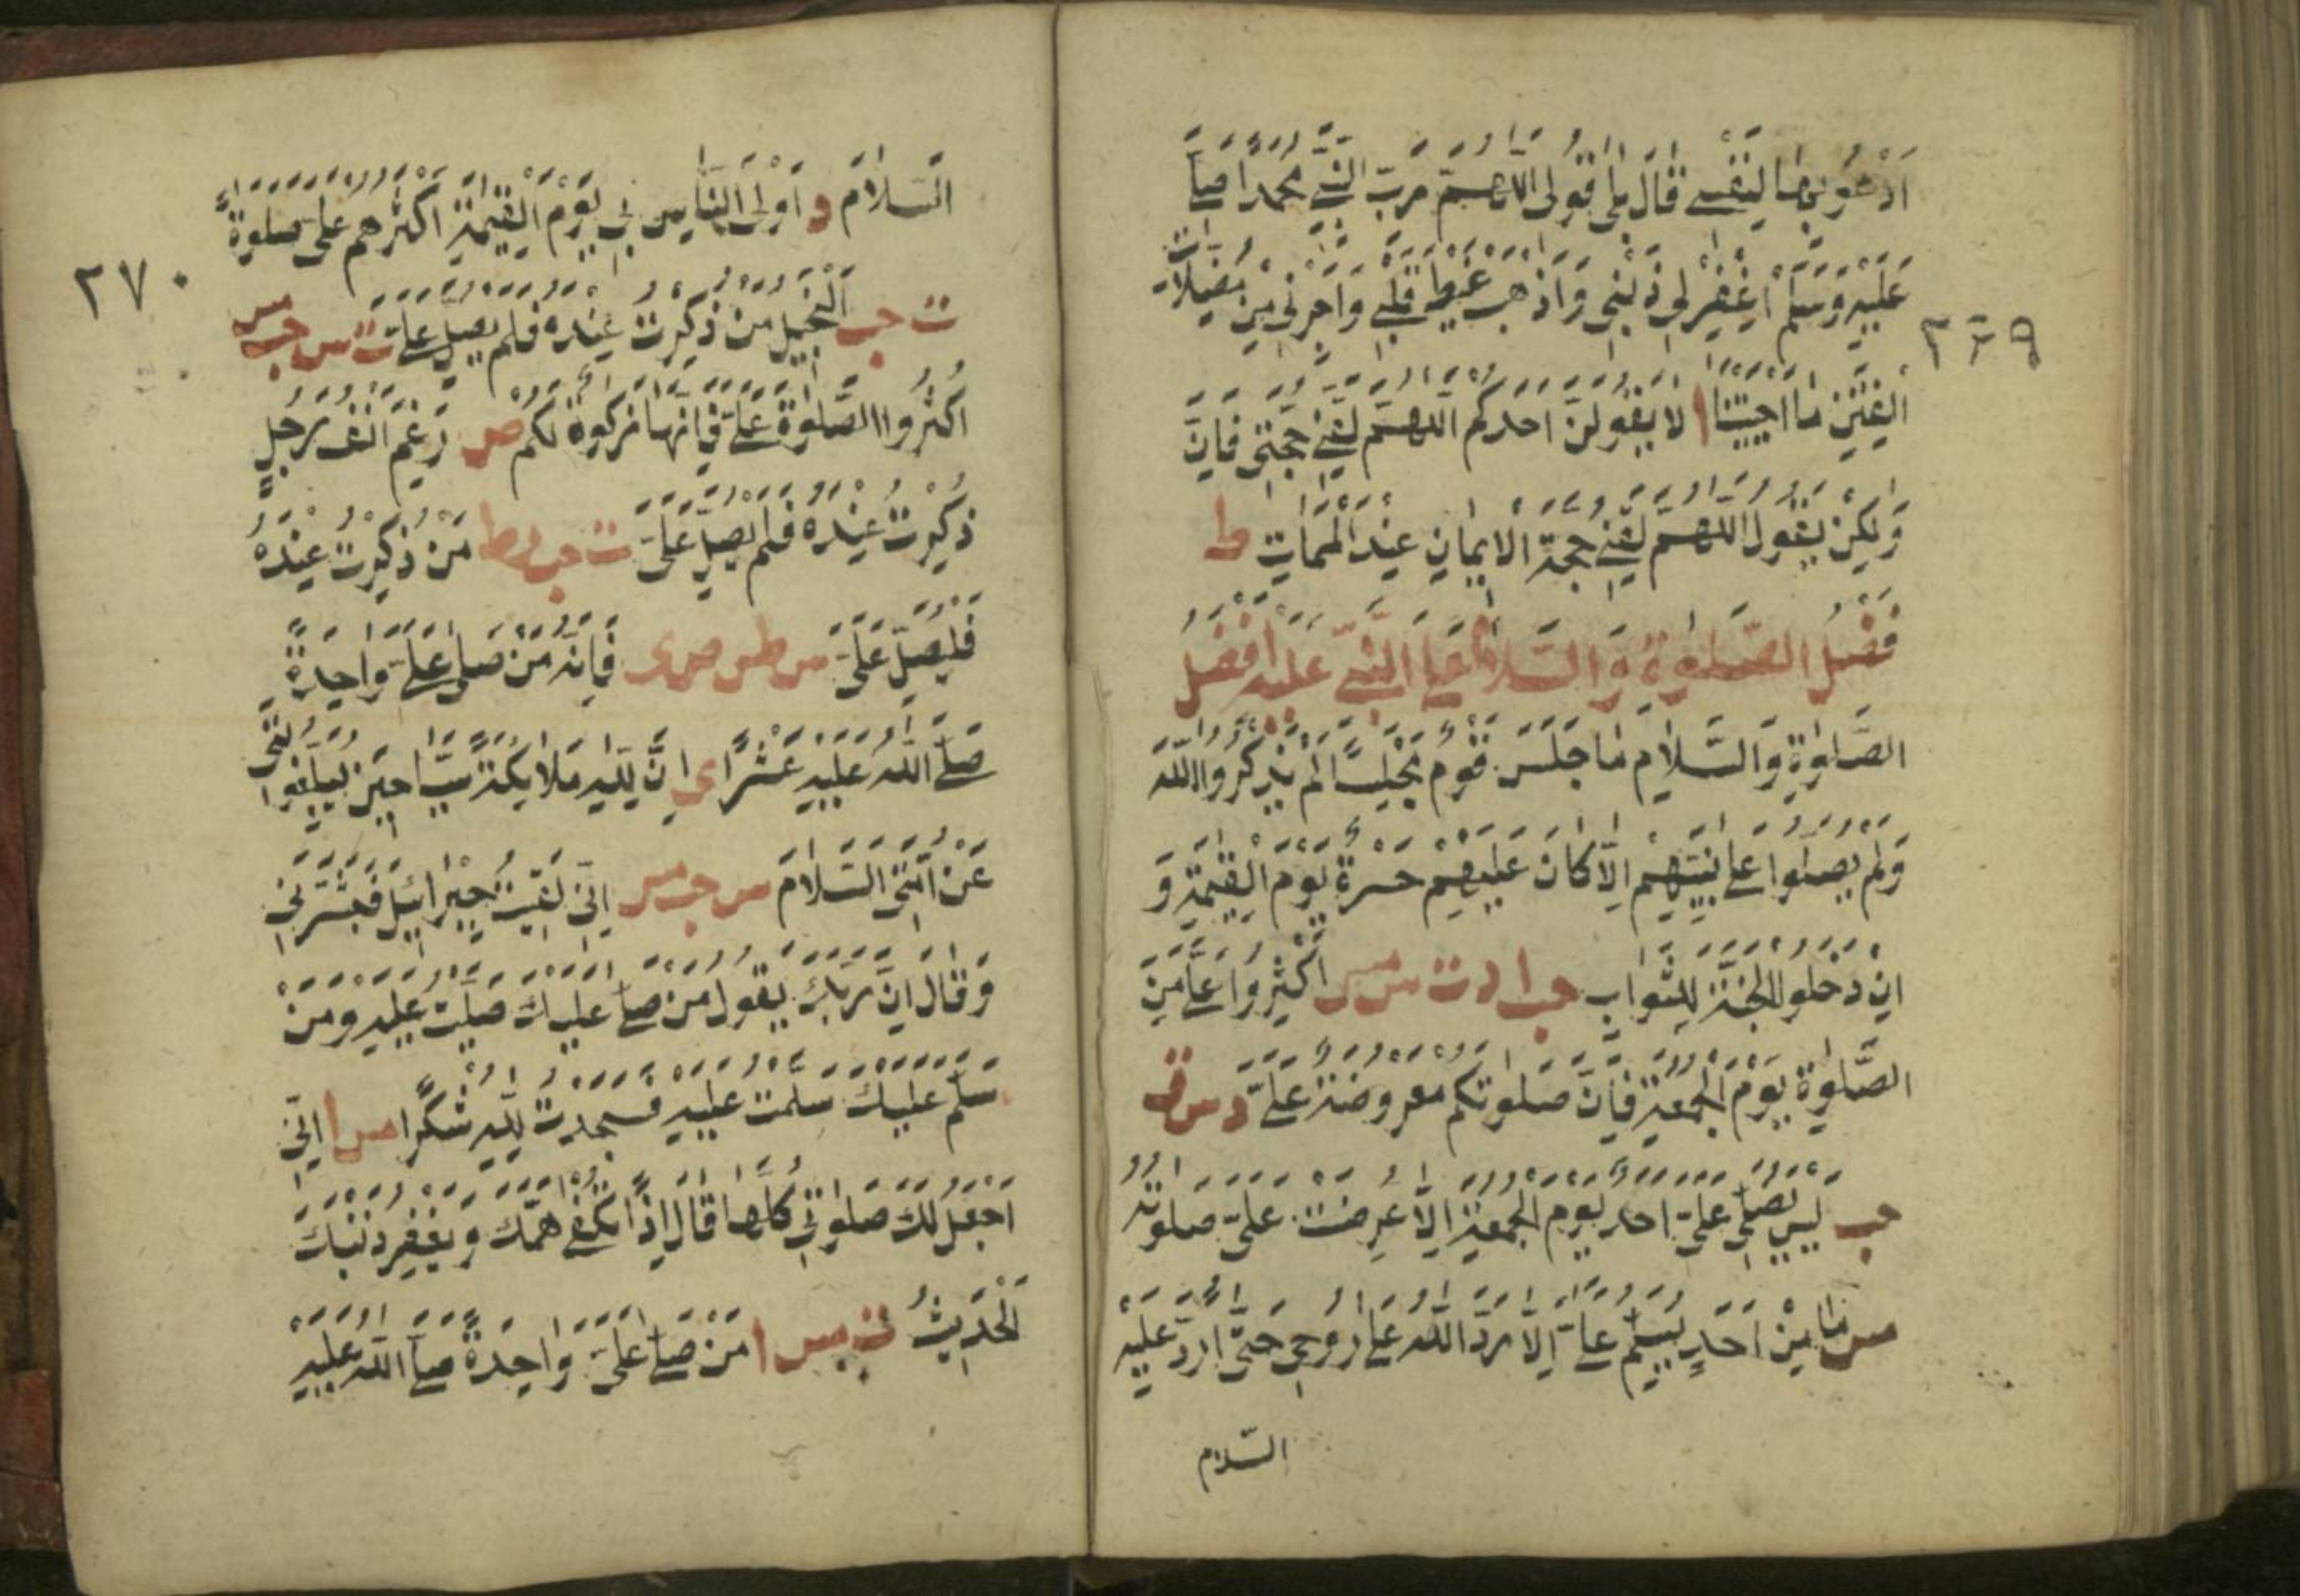 اَدْعُو بِهَا لِنَفْسِى قَالَ بَلٰى قُولِى اللّٰهُمَّ رَبَّ النَّبِىِّ مُحَمَّدٍ صَلَّى اللهُ
عَلَيْهِ وَسَلَّمَ اغْفِرْ لِى ذَنْبِى وَاَذْهِبْ غَيْظَ قَلْبِى وَاَجِرْنِى مِنْ مُضِلَّاتِ
٢٦٩
الْفِتَنِ مَا اَحْيَيْتَنَا ا لَا يَقُولَنَّ اَحَدُكُمْ اللّٰهُمَّ لَقِّنِى حُجَّتِى فَاِنَّ
وَلٰكِنْ يَقُولُ اللّٰهُمَّ لَقِّنِى حُجَّةَ الْاِيمَانِ عِنْدَ الْمَمَاتِ ط
فَضْلُ الصَّلٰوةِ وَالسَّلَامِ عَلَى النَّبِىِّ عَلَيْهِ اَفْضَلُ
الصَّلٰوةِ وَالسَّلَامِ مَا جَلَسَ قَوْمٌ مَجْلِسًا لَمْ يَذْكُرُوا اللّٰهَ
وَلَمْ يُصَلُّوا عَلَى نَبِيِّهِمْ اِلَّا كَانَ عَلَيْهِمْ حَسْرَةٌ يَوْمَ الْقِيٰمَةِ وَ
اِنْ دَخَلُوا الْجَنَّةَ لِلثَّوَابِ حب ا د ت س مس اَكْثِرُوا عَلَىَّ مِنَ
الصَّلٰوةِ يَوْمَ الْجُمُعَةِ فَاِنَّ صَلٰوتَكُمْ مَعْرُوضَةٌ عَلَىَّ د س ق
حب لَيْسَ يُصَلِّى عَلَىَّ اَحَدٌ يَوْمَ الْجُمُعَةِ اِلَّا عُرِضَتْ عَلَىَّ صَلٰوتُهُ
مس مَا مِنْ اَحَدٍ يُسَلِّمُ عَلَىَّ اِلَّا رَدَّ اللّٰهُ عَلَىَّ رُوحِى حَتَّى اَرُدَّ عَلَيْهِ
السّلام
السَّلَامَ د اَوْلَى النَّاسِ بِى يَوْمَ الْقِيٰمَةِ اَكْثَرُهُمْ عَلَىَّ صَلٰوةً
٢٧٠
ت حب اَلْبَخِيلُ مَنْ ذُكِرْتُ عِنْدَهُ فَلَمْ يُصَلِّ عَلَىَّ ت س حب مس
اَكْثِرُوا الصَّلٰوةَ عَلَىَّ فَاِنَّهَا زَكٰوةٌ لَكُمْ ص رَغِمَ اَنْفُ رَجُلٍ
ذُكِرْتُ عِنْدَهُ فَلَمْ يُصَلِّ عَلَىَّ ت حب ر ط مَنْ ذُكِرْتُ عِنْدَهُ
فَلْيُصَلِّ عَلَىَّ س طس ص ى فَاِنَّهُ مَنْ صَلَّى عَلَىَّ وَاحِدَةً
صَلَّى اللّٰهُ عَلَيْهِ عَشْرًا ى اِنَّ لِلّٰهِ مَلَائِكَةً سَيَّاحِينَ يُبَلِّغُونِى
عَنْ اُمَّتِى السَّلَامَ س حب مس اِنِّى لَقِيتُ جِبْرَائِيلَ فَبَشَّرَنِى
وَقَالَ اِنَّ رَبَّكَ يَقُولُ مَنْ صَلَّى عَلَيْكَ صَلَّيْتُ عَلَيْهِ وَمَنْ
سَلَّمَ عَلَيْكَ سَلَّمْتُ عَلَيْهِ فَسَجَدْتُ لِلّٰهِ شُكْرًا مس ا اِنِّى
اَجْعَلُ لَكَ صَلٰوتِى كُلَّهَا قَالَ اِذًا تُكْفٰى هَمَّكَ وَيُغْفَرُ ذَنْبُكَ
الْحَدِيثُ ت مس ا مَنْ صَلَّى عَلَىَّ وَاحِدَةً صَلَّى اللّٰهُ عَلَيْهِ